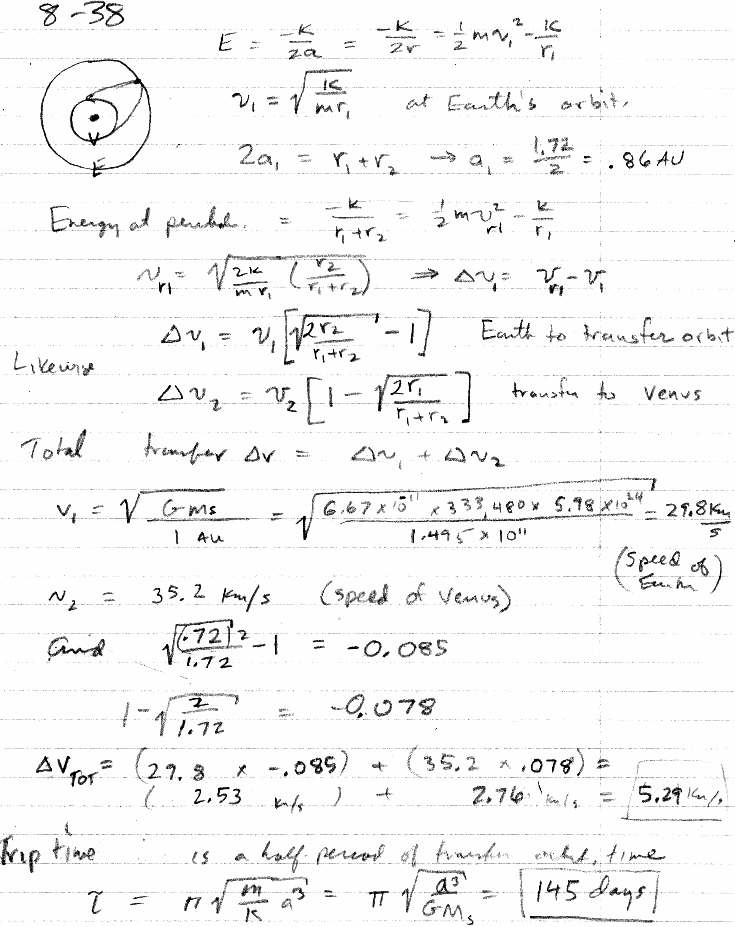 8-38
E = -k/2a = -k/2r = 1/2 mv₁² - k/r₁
v₁ = √(k/mr₁) at Earth's orbit.
V
E
2a₁ = r₁ + r₂ → a₁ = 1.72/2 = .86 AU
Energy at perihel. = -k/(r₁+r₂) = 1/2 mv²r1 - k/r₁
vr1 = √(2k/mr₁ (r₂/(r₁+r₂))) ⇒ Δv₁ = vr1 - v₁
Δv₁ = v₁ [√(2r₂/(r₁+r₂)) - 1] Earth to transfer orbit
Likewise
Δv₂ = v₂ [1 - √(2r₁/(r₁+r₂))] transfer to Venus
Total transfer Δv = Δv₁ + Δv₂
v₁ = √(GMs/1 AU) = √(6.67×10⁻¹¹ × 333,480 × 5.98×10²⁴ / 1.495×10¹¹) = 29.8 km/s
(Speed of Earth)
v₂ = 35.2 km/s (speed of Venus)
and √((.72)2/1.72) - 1 = -0.085
1 - √(2/1.72) = -0.078
ΔVTOT = (29.8 × -.085) + (35.2 × .078) =
( 2.53 km/s ) + 2.76 km/s = 5.29 km/s
Trip time is a half period of transfer orbit, time
τ = π√(m/k a³) = π√(a³/GMs) = 145 days